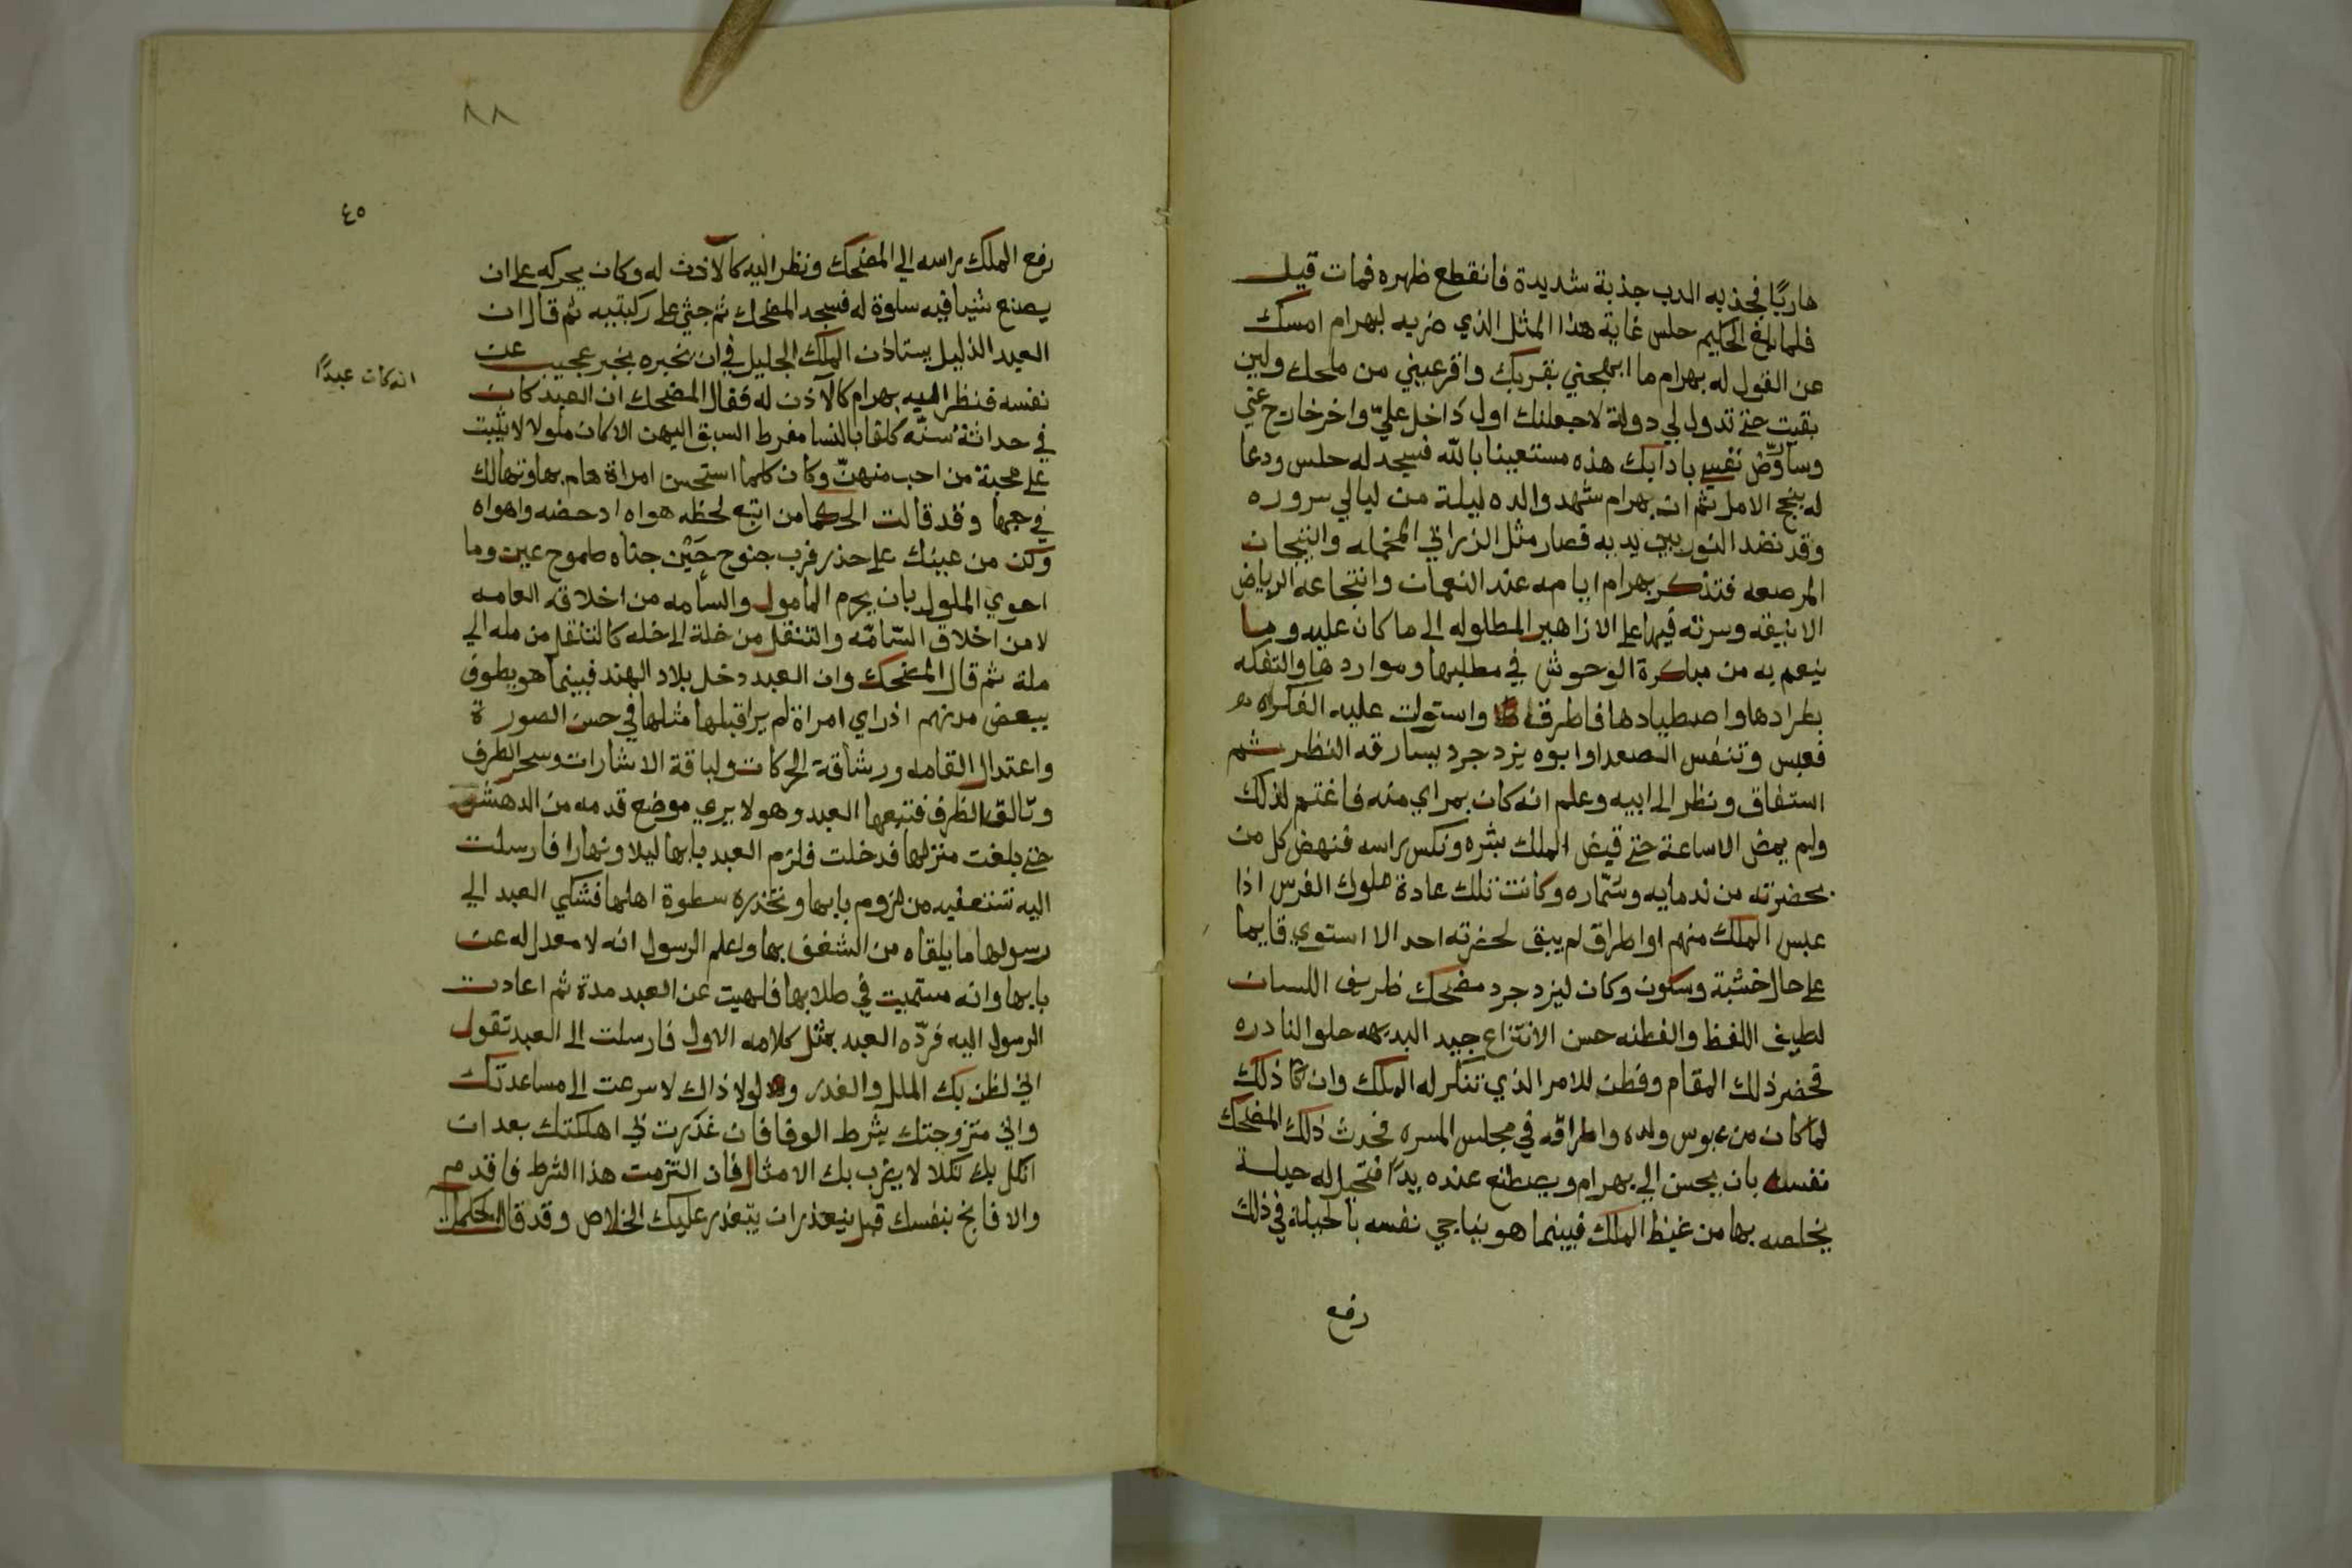 هاربًا فجذبه الدب جذبة شديدة فانقطع ظهره فمات قيل
فلما بلغ الحكيم حلس غاية هذا المثل الذي ضربه لبهرام امسك
عن القول له بهرام ما ابهجني بقربك واقر عيني من ملحك ولين
بقيت حتى تدول لي دولة لاجعلنك اول داخل عليّ واخر خارج عني
وساروّض نفسي بادابك هذه مستعينا بالله فسجد له حلس ودعا
له بنجح الامل ثم ان بهرام شهد والده ليلة من ليالي سروره
وقد نضد النور بين يديه فصار مثل الزرابي المخمله والتيجان
المرصعه فتذكر بهرام ايامه عند النعمان وانتجاعه الرياض
الانيقه وسرته فيها على الازاهير المطلوله الى ما كان عليه وما
ينعم به من مباكرة الوحوش في مطلبها ومواردها والتفكه
بطرادها واصطيادها فاطرق واستولت عليه الفكره
فعبس وتنفس الصعدا وابوه يزدجرد يسارقه النظر ثم
استفاق ونظر الى ابيه وعلم انه كان بمراي منه فاغتم لذلك
ولم يمض الا ساعة حتى قبض الملك بشره ونكس راسه فنهض كل من
بحضرته من ندمايه وسمّاره وكانت تلك عادة ملوك الفرس اذا
عبس الملك منهم او اطرق لم يبق لحضرته احد الا استوي قايما
على حال خشية وسكون وكان ليزدجرد مضحك ظريف اللسان
لطيف اللفظ والفطنه حسن الانتزاع جيد البديهه حلو النادره
فحضر ذلك المقام وفطن للامر الذي تنكر له الملك وان ذلك
لما كان من عبوس ولده واطراقه في مجلس المسره فحدث ذلك المضحك
نفسه بان يحسن الي بهرام ويصطنع عنده يدًا فتحيل له حيلة
يخلصه بها من غيظ الملك فبينما هو يناجي نفسه بالحيلة في ذلك
رفع
٨٨
٤٥
رفع الملك راسه الي المضحك ونظر اليه كالآذن له وكان يحركه على ان
يصنع شيا فيه سلوة له فسجد المضحك ثم جثي على ركبتيه ثم قال ان
العبد الذليل يستاذن الملك الجليل في ان يخبره بخبر عجيب عن
انه كان عبدًا
نفسه فنظر اليه بهرام كالآذن له فقال المضحك ان العبد كان
في حداثة سنّه كلفا بالنسا مفرط السبق اليهن الا كان ملولا لا يثبت
على محبة من احب منهنّ وكان كلما استحسن امراة هام بها وتهالك
في حبها وقد قالت الحكما من اتبع لحظه هواه ادحضه واهواه
وكن من عينك على حذر فرب جنوح حَيْن جناه طموح عين وما
احري الملول بان يحرم المامول والسأمه من اخلاق العامه
لا من اخلاق السّامّه والتنقل من خلة الى خله كالتنقل من مله الي
ملة ثم قال المضحك وان العبد دخل بلاد الهند فبينما هو يطوف
ببعض مدنهم اذ راي امراة لم ير اقبلها مثلها في حسن الصورة
واعتدال القامه ورشاقة الحركات ولباقة الاشارات وسحر الطرف
وتالق الظرف فتبعها العبد وهو لا يري موضع قدمه من الدهش
حتى بلغت منزلها فدخلت فلزم العبد بابها ليلا ونهارا فارسلت
اليه تستعفيه من لزوم بابها وتحذره سطوة اهلها فشكي العبد الي
رسولها ما يلقاه من الشغف بها واعلم الرسول انه لا معدل له عن
بابها وانه مستميت في طلابها فلهيت عن العبد مدة ثم اعادت
الرسول اليه فردّه العبد بمثل كلامه الاول فارسلت الى العبد تقول
اني لظن بك الملل والغدر ولولا ذاك لاسرعت الى مساعدتك
واني متزوجتك بشرط الوفا فان غدرت بي اهلكتك بعد ان
انكل بك نكلا لا يضرب بك الامثال فان التزمت هذا الشرط فاقدم
والا فانج بنفسك قبل يتعذر ان يتعذر عليك الخلاص وقد قال الحكما